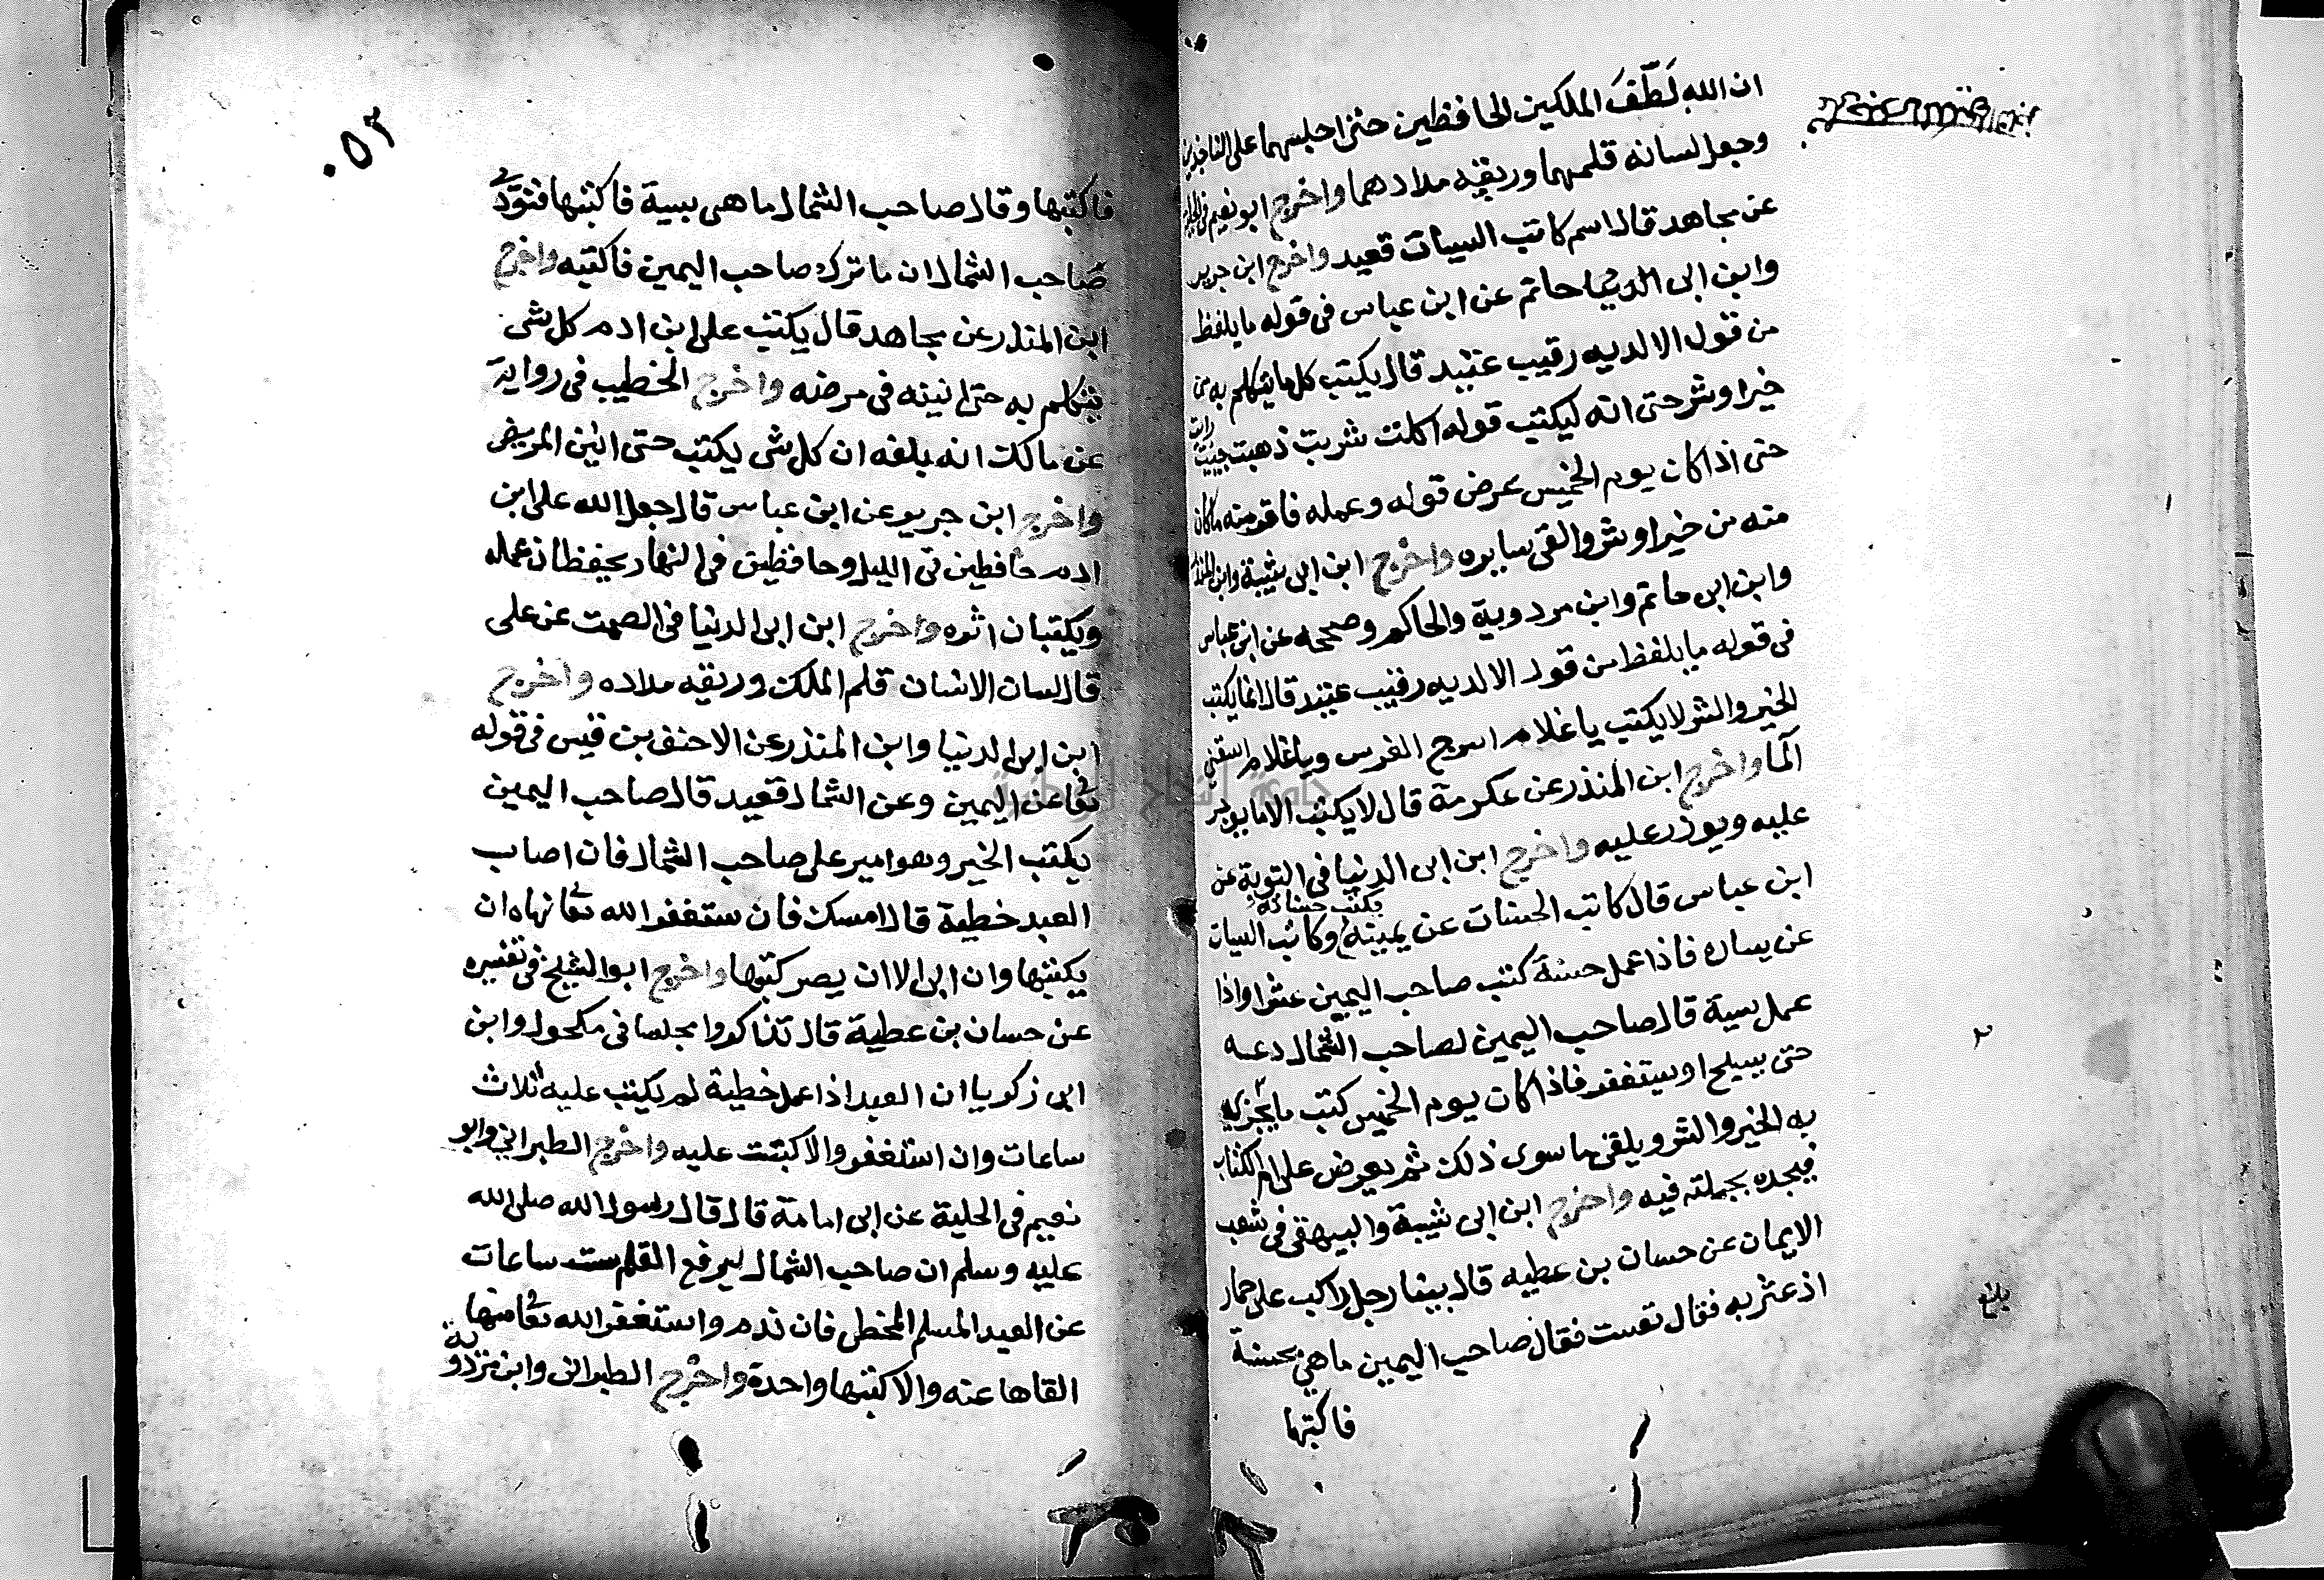 ان الله لَطَّفَ الملكين الحافظين حتى اجلسهما على الناجذين
وجعل لسانه قلمهما وريقه مدادهما واخرج ابو نعيم فى الحلية
عن مجاهد قال اسم كاتب السيات قعيد واخرج ابن جرير
وابن ابى حاتم عن ابن عباس فى قوله ما يلفظ
من قول الا لديه رقيب عتيد قال يكتب كل ما يتكلم به من
خير او شر حتى انه ليكتب قوله اكلت شربت ذهبت جيت رايت
حتى اذا كان يوم الخميس عرض قوله وعمله فاقر منه ما كان
منه من خير او شر والقى سايره واخرج ابن ابى شيبة وابن المنذر
وابن ابى حاتم وابن مردوية والحاكم وصححه عن ابن عباس
فى قوله ما يلفظ من قول الا لديه رقيب عتيد قال انما يكتب
الخير والشر لا يكتب يا غلام اسرج الفرس ويا غلام اسقني
الما واخرج ابن المنذر عن عكرمة قال لا يكتب الا ما يوجر
عليه ويوذر عليه واخرج ابن ابى الدنيا فى التوبة عن
ابن عباس قال كاتب الحسنات عن يمينه يكتب حسناته وكاتب السيات
عن يساره فاذا عمل حسنة كتب صاحب اليمين عشرا واذا
عمل سية قال صاحب اليمين لصاحب الشمال دعه
حتى يسبح او يستغفر فاذا كان يوم الخميس كتب ما يجزى
به الخير والشر ويلقى ما سوى ذلك ثم يعرض على ام الكتاب
فيجده بجملته فيه واخرج ابن ابى شيبة والبيهقى فى شعب
الايمان عن حسان بن عطيه قال بينا رجل راكب على حمار
اذ عثر به فقال تعست فقال صاحب اليمين ما هى بحسنة
فاكتبها
بلغ
٥٣
فاكتبها وقال صاحب الشمال ما هى بسية فاكتبها فنودى
صاحب الشمال ان ما ترك صاحب اليمين فاكتبه واخرج
ابن المنذر عن مجاهد قال يكتب على ابن ادم كل شى
يتكلم به حتى انينه فى مرضه واخرج الخطيب فى رواية
عن مالك انه بلغه ان كل شى يكتب حتى انين المريض
واخرج ابن جرير عن ابن عباس قال جعل الله على ابن
ادم حافظين فى الليل وحافظين فى النهار يحفظان عمله
ويكتبان اثره واخرج ابن ابى الدنيا فى الصمت عن على
قال لسان الانسان قلم الملك وريقه مداده واخرج
ابن ابى الدنيا وابن المنذر عن الاحنف بن قيس فى قوله
تعا عن اليمين وعن الشمال قعيد قال صاحب اليمين
يكتب الخير وهو امير على صاحب الشمال فان اصاب
العبد خطية قال امسك فان ستغفر الله تعا نهاه ان
يكتبها وان ابى الا ان يصر كتبها واخرج ابو الشيخ فى تفسيره
عن حسان بن عطية قال تذاكروا مجلسا فى مكحول وابن
ابى زكريا ان العبد اذا عمل خطية لم يكتب عليه ثلاث
ساعات وان استغفر والا كتبت عليه واخرج الطبراني وابو
نعيم فى الحلية عن ابى امامة قال قال رسول الله صلى الله
عليه وسلم ان صاحب الشمال ليرفع القلم ست ساعات
عن العبد المسلم المخطى فان ندم واستغفر الله تعا منها
القاها عنه والا كتبها واحدة واخرج الطبرانى وابن مردوية